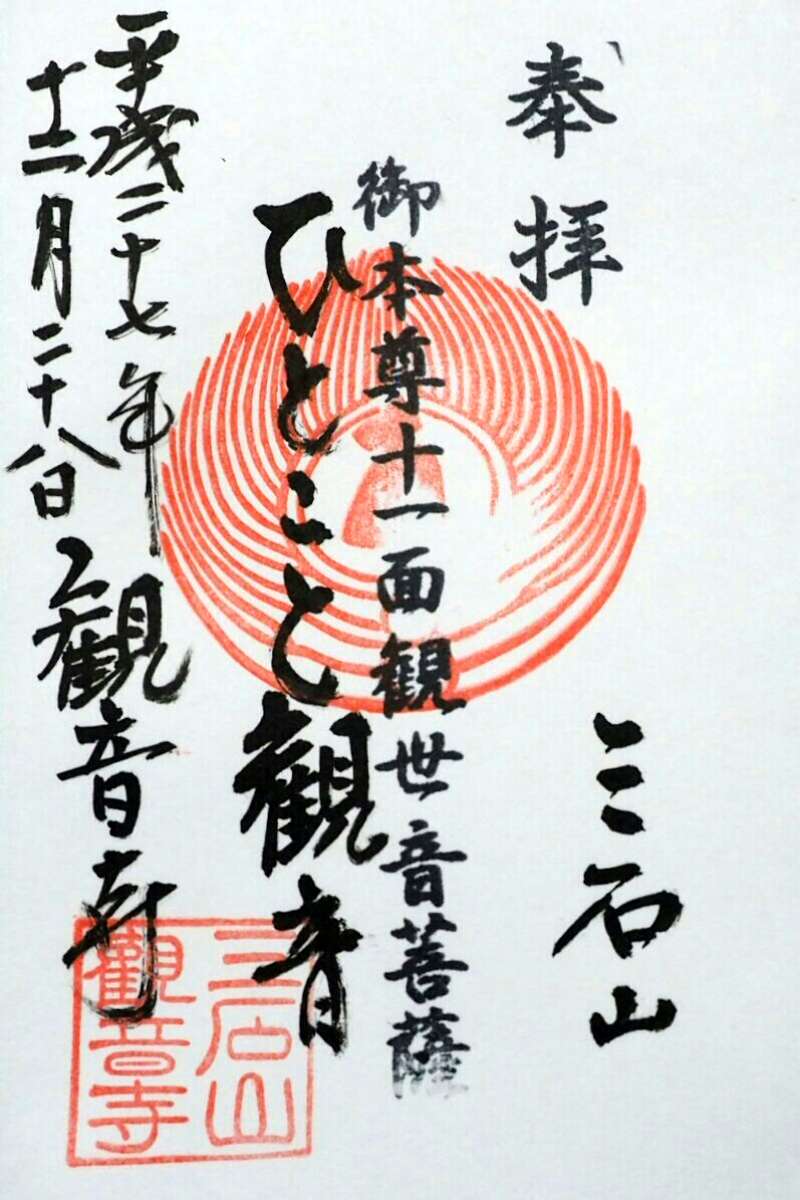 奉拝
三石山
御本尊十一面観世音菩薩
ひとこと観音
平成二十七年
十二月二十八日
観音寺
三石山
觀音寺